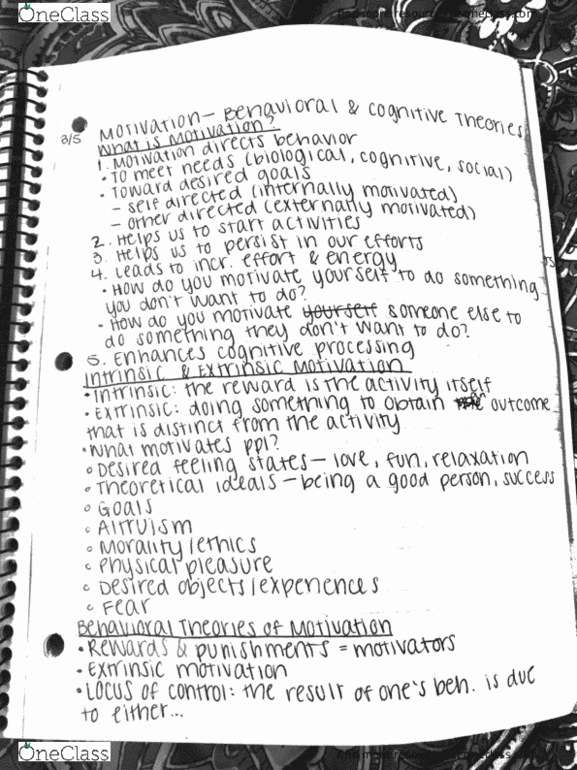 OneClass
3/5
Motivation - Behavioral & Cognitive Theories
What is Motivation?
1. Motivation directs behavior
• To meet needs (biological, cognitive, social)
• Toward desired goals
- self directed (internally motivated)
- other directed (externally motivated)
2. Helps us to start activities
3. Helps us to persist in our efforts
4. Leads to incr. effort & energy
• How do you motivate yourself to do something
you don't want to do?
• How do you motivate yourself someone else to
do something they don't want to do?
5. Enhances cognitive processing
Intrinsic & Extrinsic Motivation
• Intrinsic: the reward is the activity itself
• Extrinsic: doing something to obtain outcome
that is distinct from the activity
• What motivates ppl?
◦ Desired feeling states - love, fun, relaxation
◦ Theoretical ideals - being a good person, success
◦ Goals
◦ Altruism
◦ Morality/ethics
◦ Physical pleasure
◦ Desired objects/experiences
◦ Fear
Behavioral Theories of Motivation
• Rewards & punishments = motivators
• Extrinsic motivation
• Locus of control: the result of one's beh. is due
to either...
OneClass